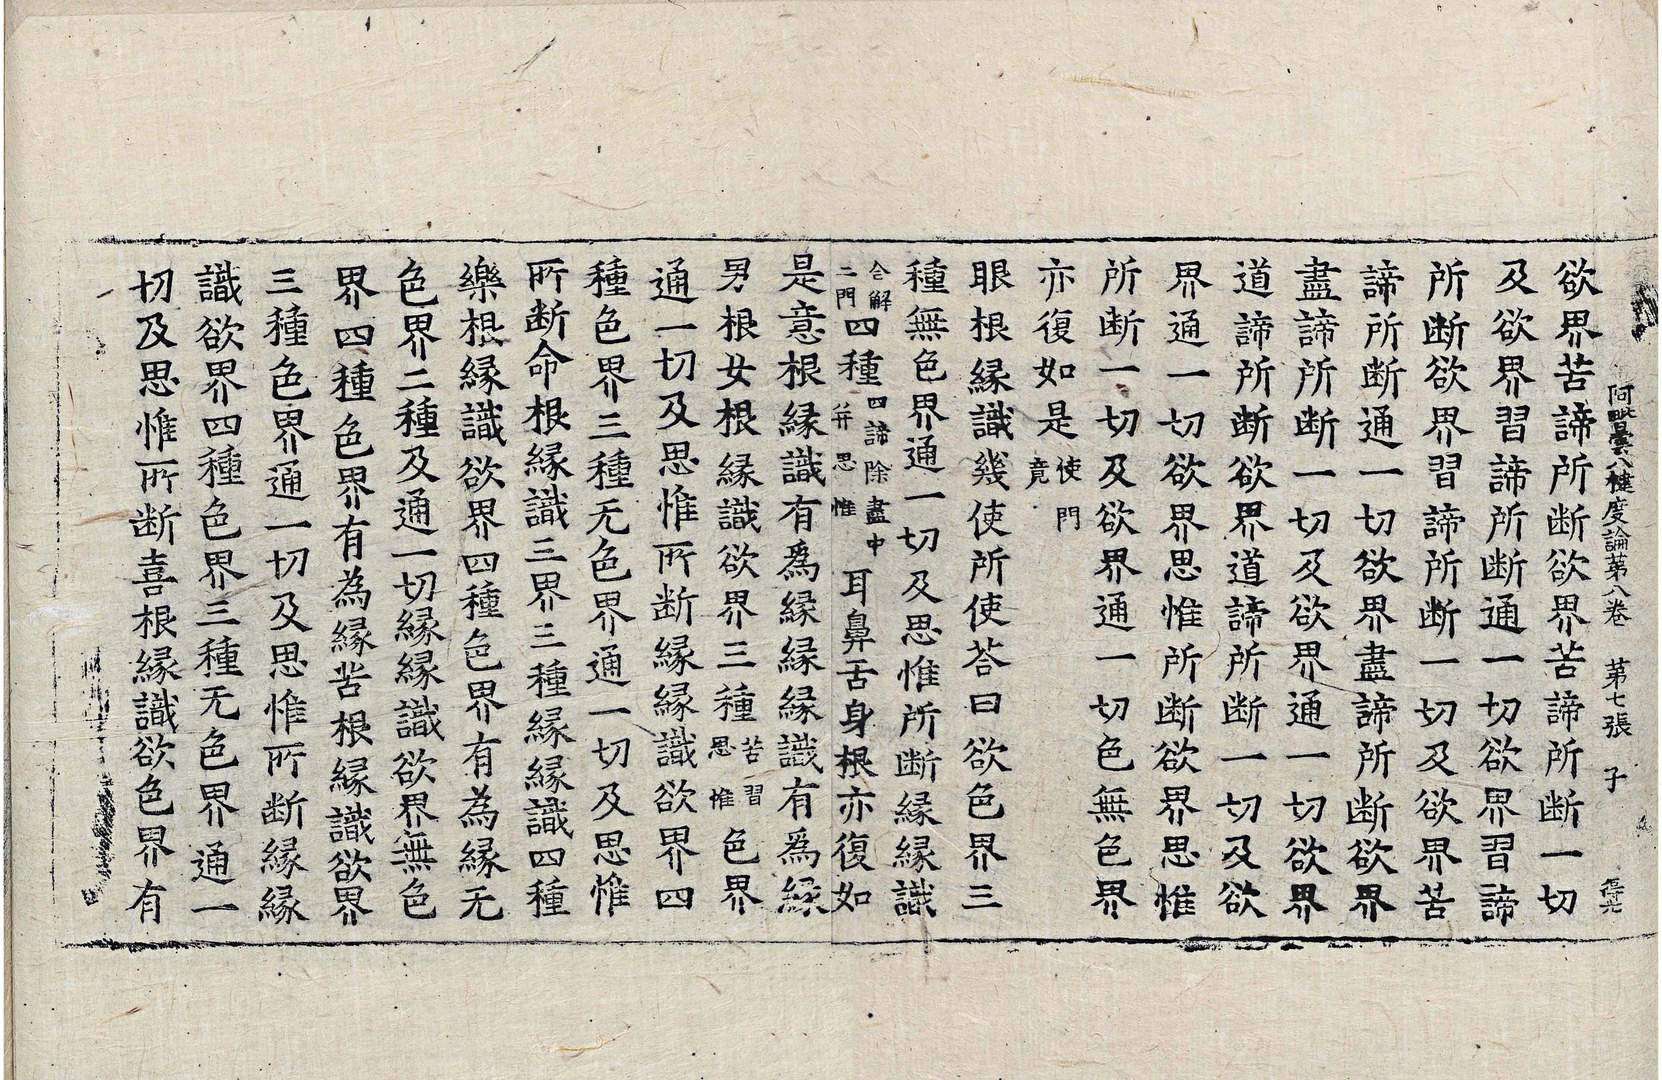 阿毗曇八犍度論第八卷 第七張 子
欲界苦諦所断欲界苦諦所断一切
及欲界習諦所断通一切欲界習諦
所断欲界習諦所断一切及欲界苦
諦所断通一切欲界盡諦所断欲界
盡諦所断一切及欲界通一切欲界
道諦所断欲界道諦所断一切及欲
界通一切欲界思惟所断欲界思惟
所断一切及欲界通一切色無色界
亦復如是使門竟
眼根縁識幾使所使荅曰欲色界三
種無色界通一切及思惟所断縁縁識
合解二門四種四諦除盡中并思惟耳鼻舌身根亦復如
是意根縁識有爲縁縁縁識有爲縁
男根女根縁識欲界三種苦習思惟色界
通一切及思惟所断縁縁識欲界四
種色界三種无色界通一切及思惟
所断命根縁識三界三種縁縁識四種
樂根縁識欲界四種色界有為縁无
色界二種及通一切縁縁識欲界無色
界四種色界有為縁苦根縁識欲界
三種色界通一切及思惟所断縁縁
識欲界四種色界三種无色界通一
切及思惟所断喜根縁識欲色界有